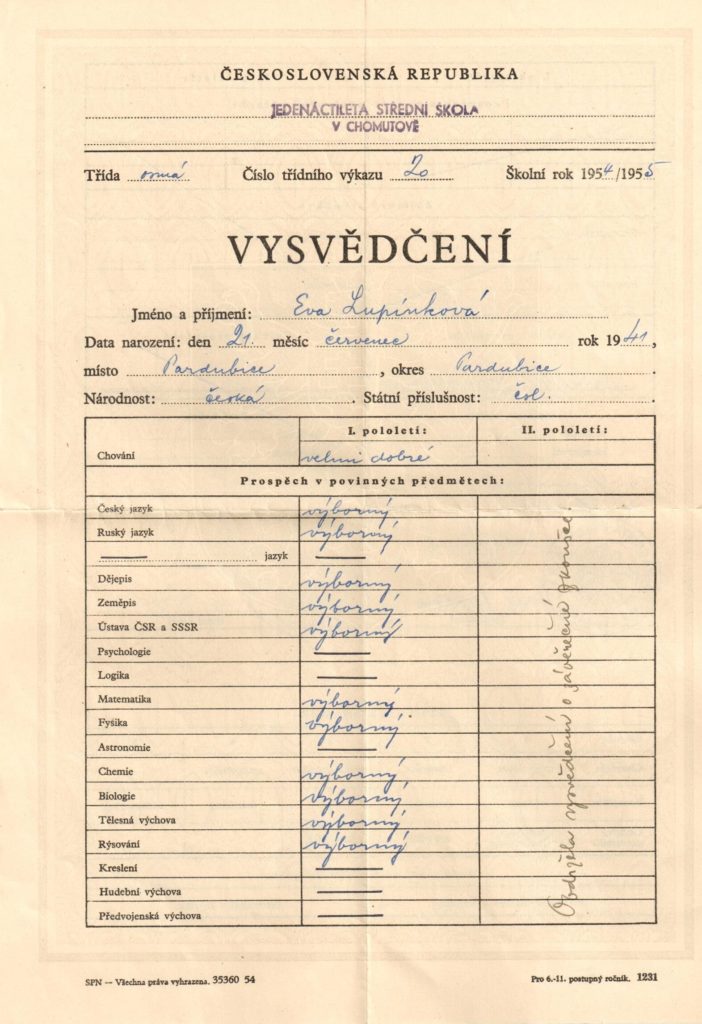 ČESKOSLOVENSKÁ REPUBLIKA
JEDENÁCTILETÁ STŘEDNÍ ŠKOLA
V CHOMUTOVĚ
Třída osmá Číslo třídního výkazu 20 Školní rok 1954/1955
VYSVĚDČENÍ
Jméno a příjmení: Eva Lupínková
Data narození: den 21. měsíc červenec rok 1941,
místo Pardubice, okres Pardubice.
Národnost: česká. Státní příslušnost: čsl.
I. pololetí: II. pololetí:
Chování velmi dobré
Prospěch v povinných předmětech:
Český jazyk výborný
Ruský jazyk výborný
jazyk
Dějepis výborný
Zeměpis výborný
Ústava ČSR a SSSR výborný
Psychologie
Logika
Matematika výborný
Fysika výborný
Astronomie
Chemie výborný
Biologie výborný
Tělesná výchova výborný
Rýsování výborný
Kreslení
Hudební výchova
Předvojenská výchova
Obdržela vysvědčení o závěrečné zkoušce.
SPN — Všechna práva vyhrazena. 35360 54 Pro 6.-11. postupný ročník. 1231